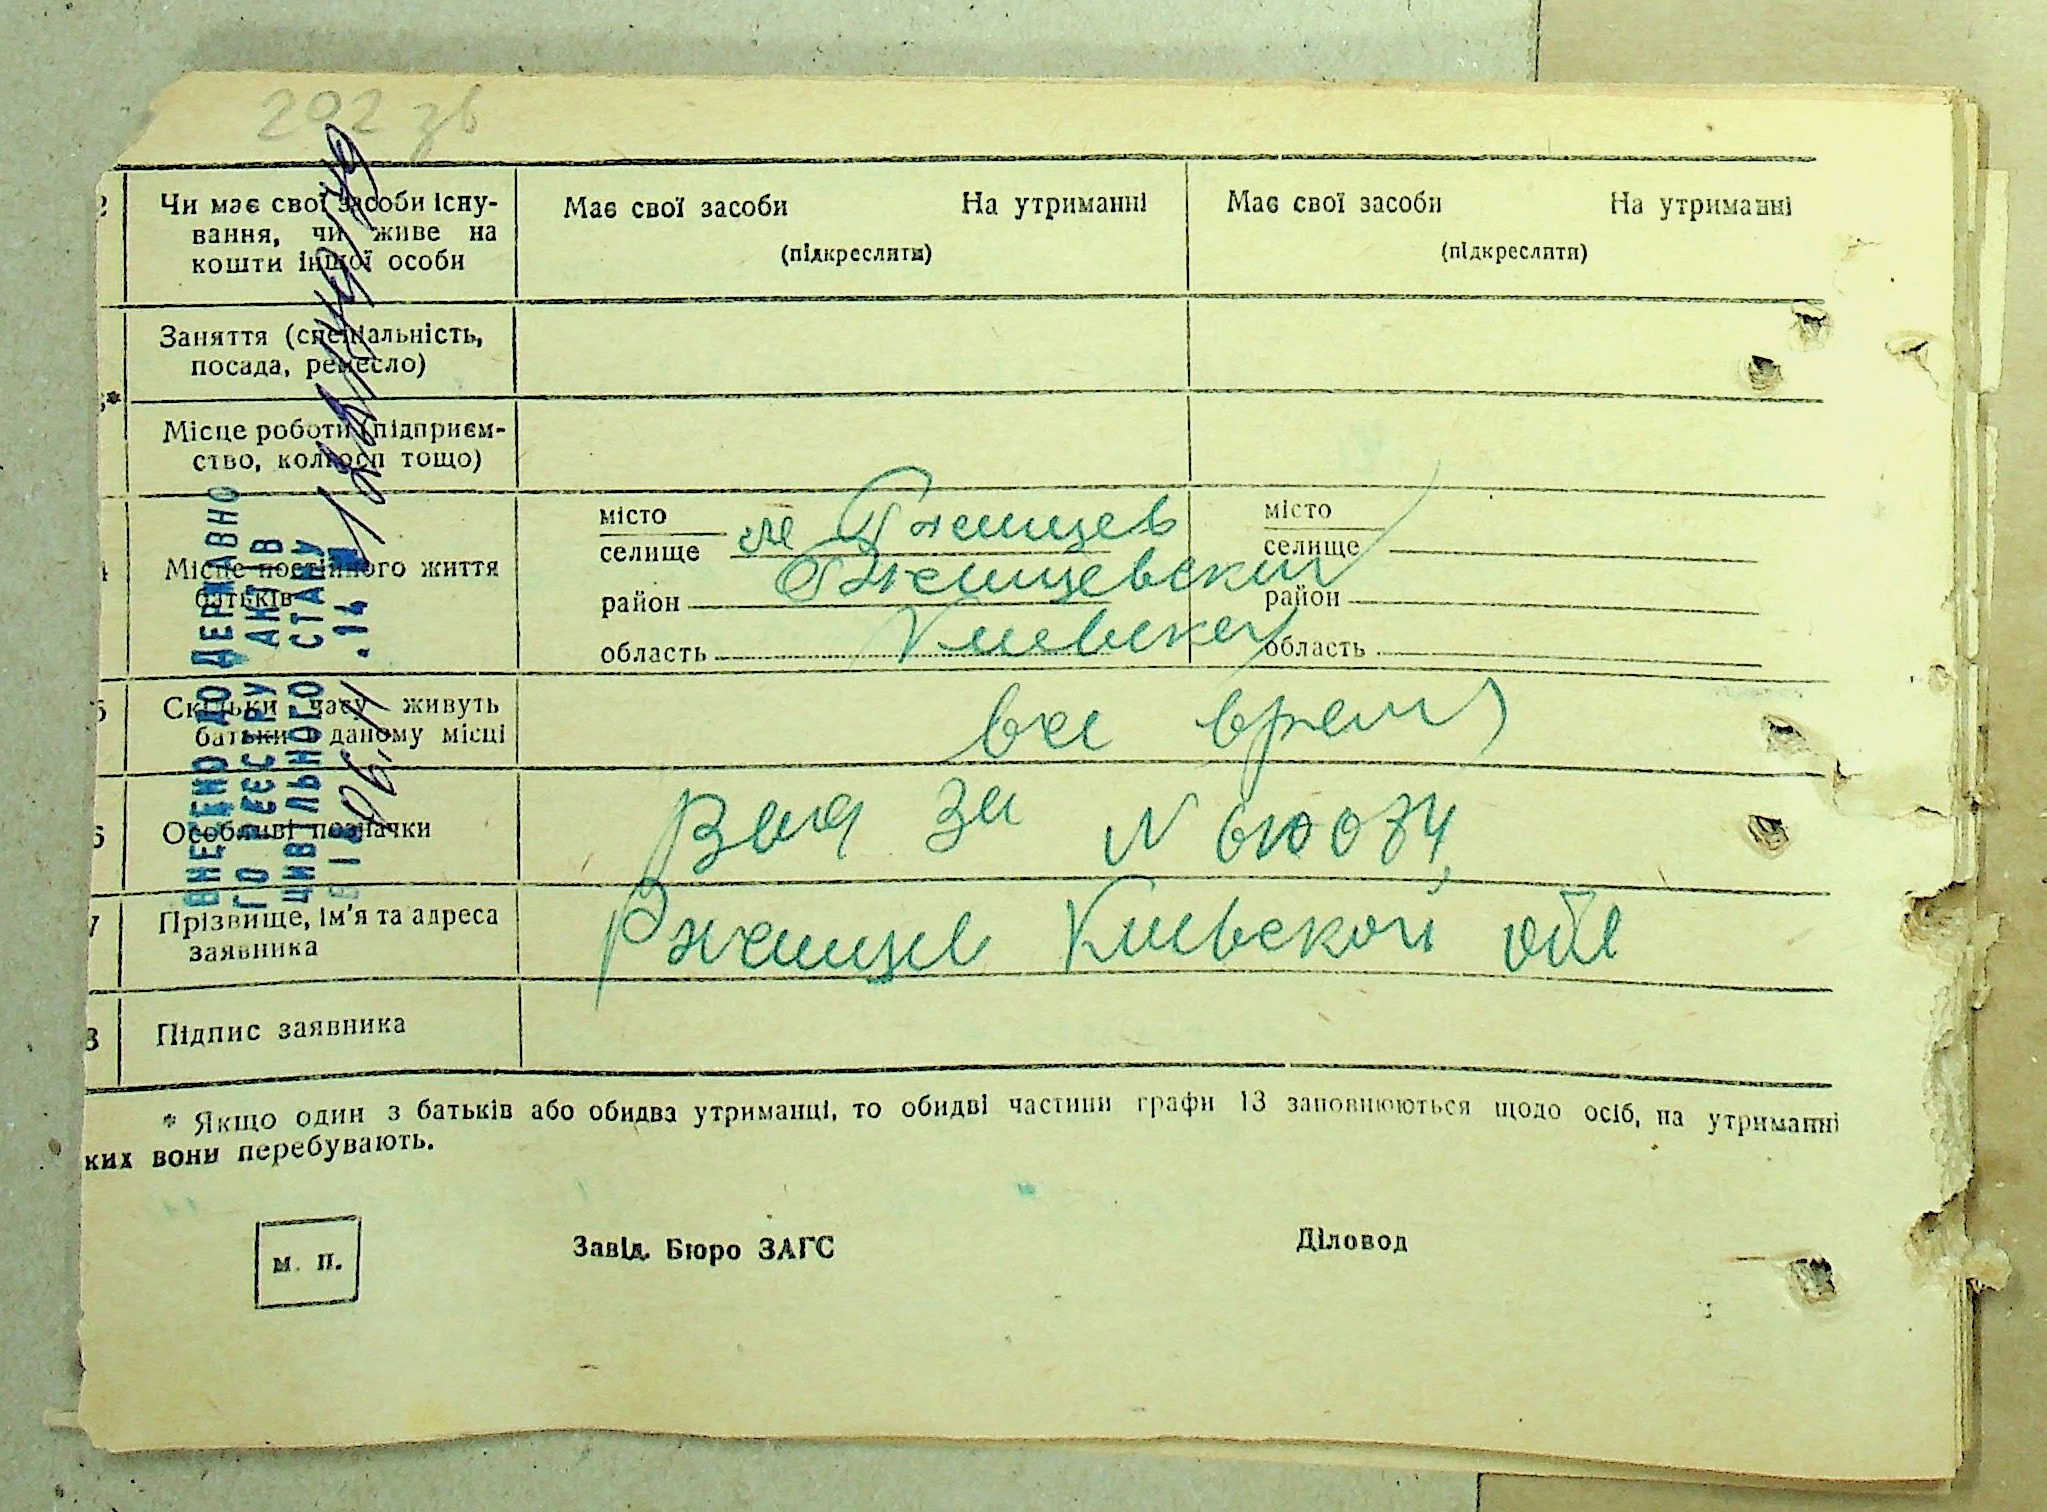 202 зв
2 Чи має свої засоби існу- Має свої засоби На утриманні Має свої засоби На утриманні
вання, чи живе на (підкреслити) (підкреслити)
кошти іншої особи
Заняття (спеціальність,
посада, ремесло)
*
Місце роботи (підприєм-
ство, колгосп тощо)
місто м Ржищев місто
селище селище
4 Місце постійного життя
батьків
район Ржищевский район
область Киевской область
5 Скільки часу живуть все время
батьки в даному місці
6 Особливі позначки за N
7 Прізвище, ім'я та адреса Ржищев Киевской обл
заявника
8 Підпис заявника
* Якщо один з батьків або обидва утриманці, то обидві частини графи 13 заповнюються щодо осіб, на утриманні
ких вони перебувають.
м. п. Завід. Бюро ЗАГС Діловод
ВНЕСЕНО ДО ДЕРЖАВНО
ГО РЕЄСТРУ АКТІВ
ЦИВІЛЬНОГО СТАНУ